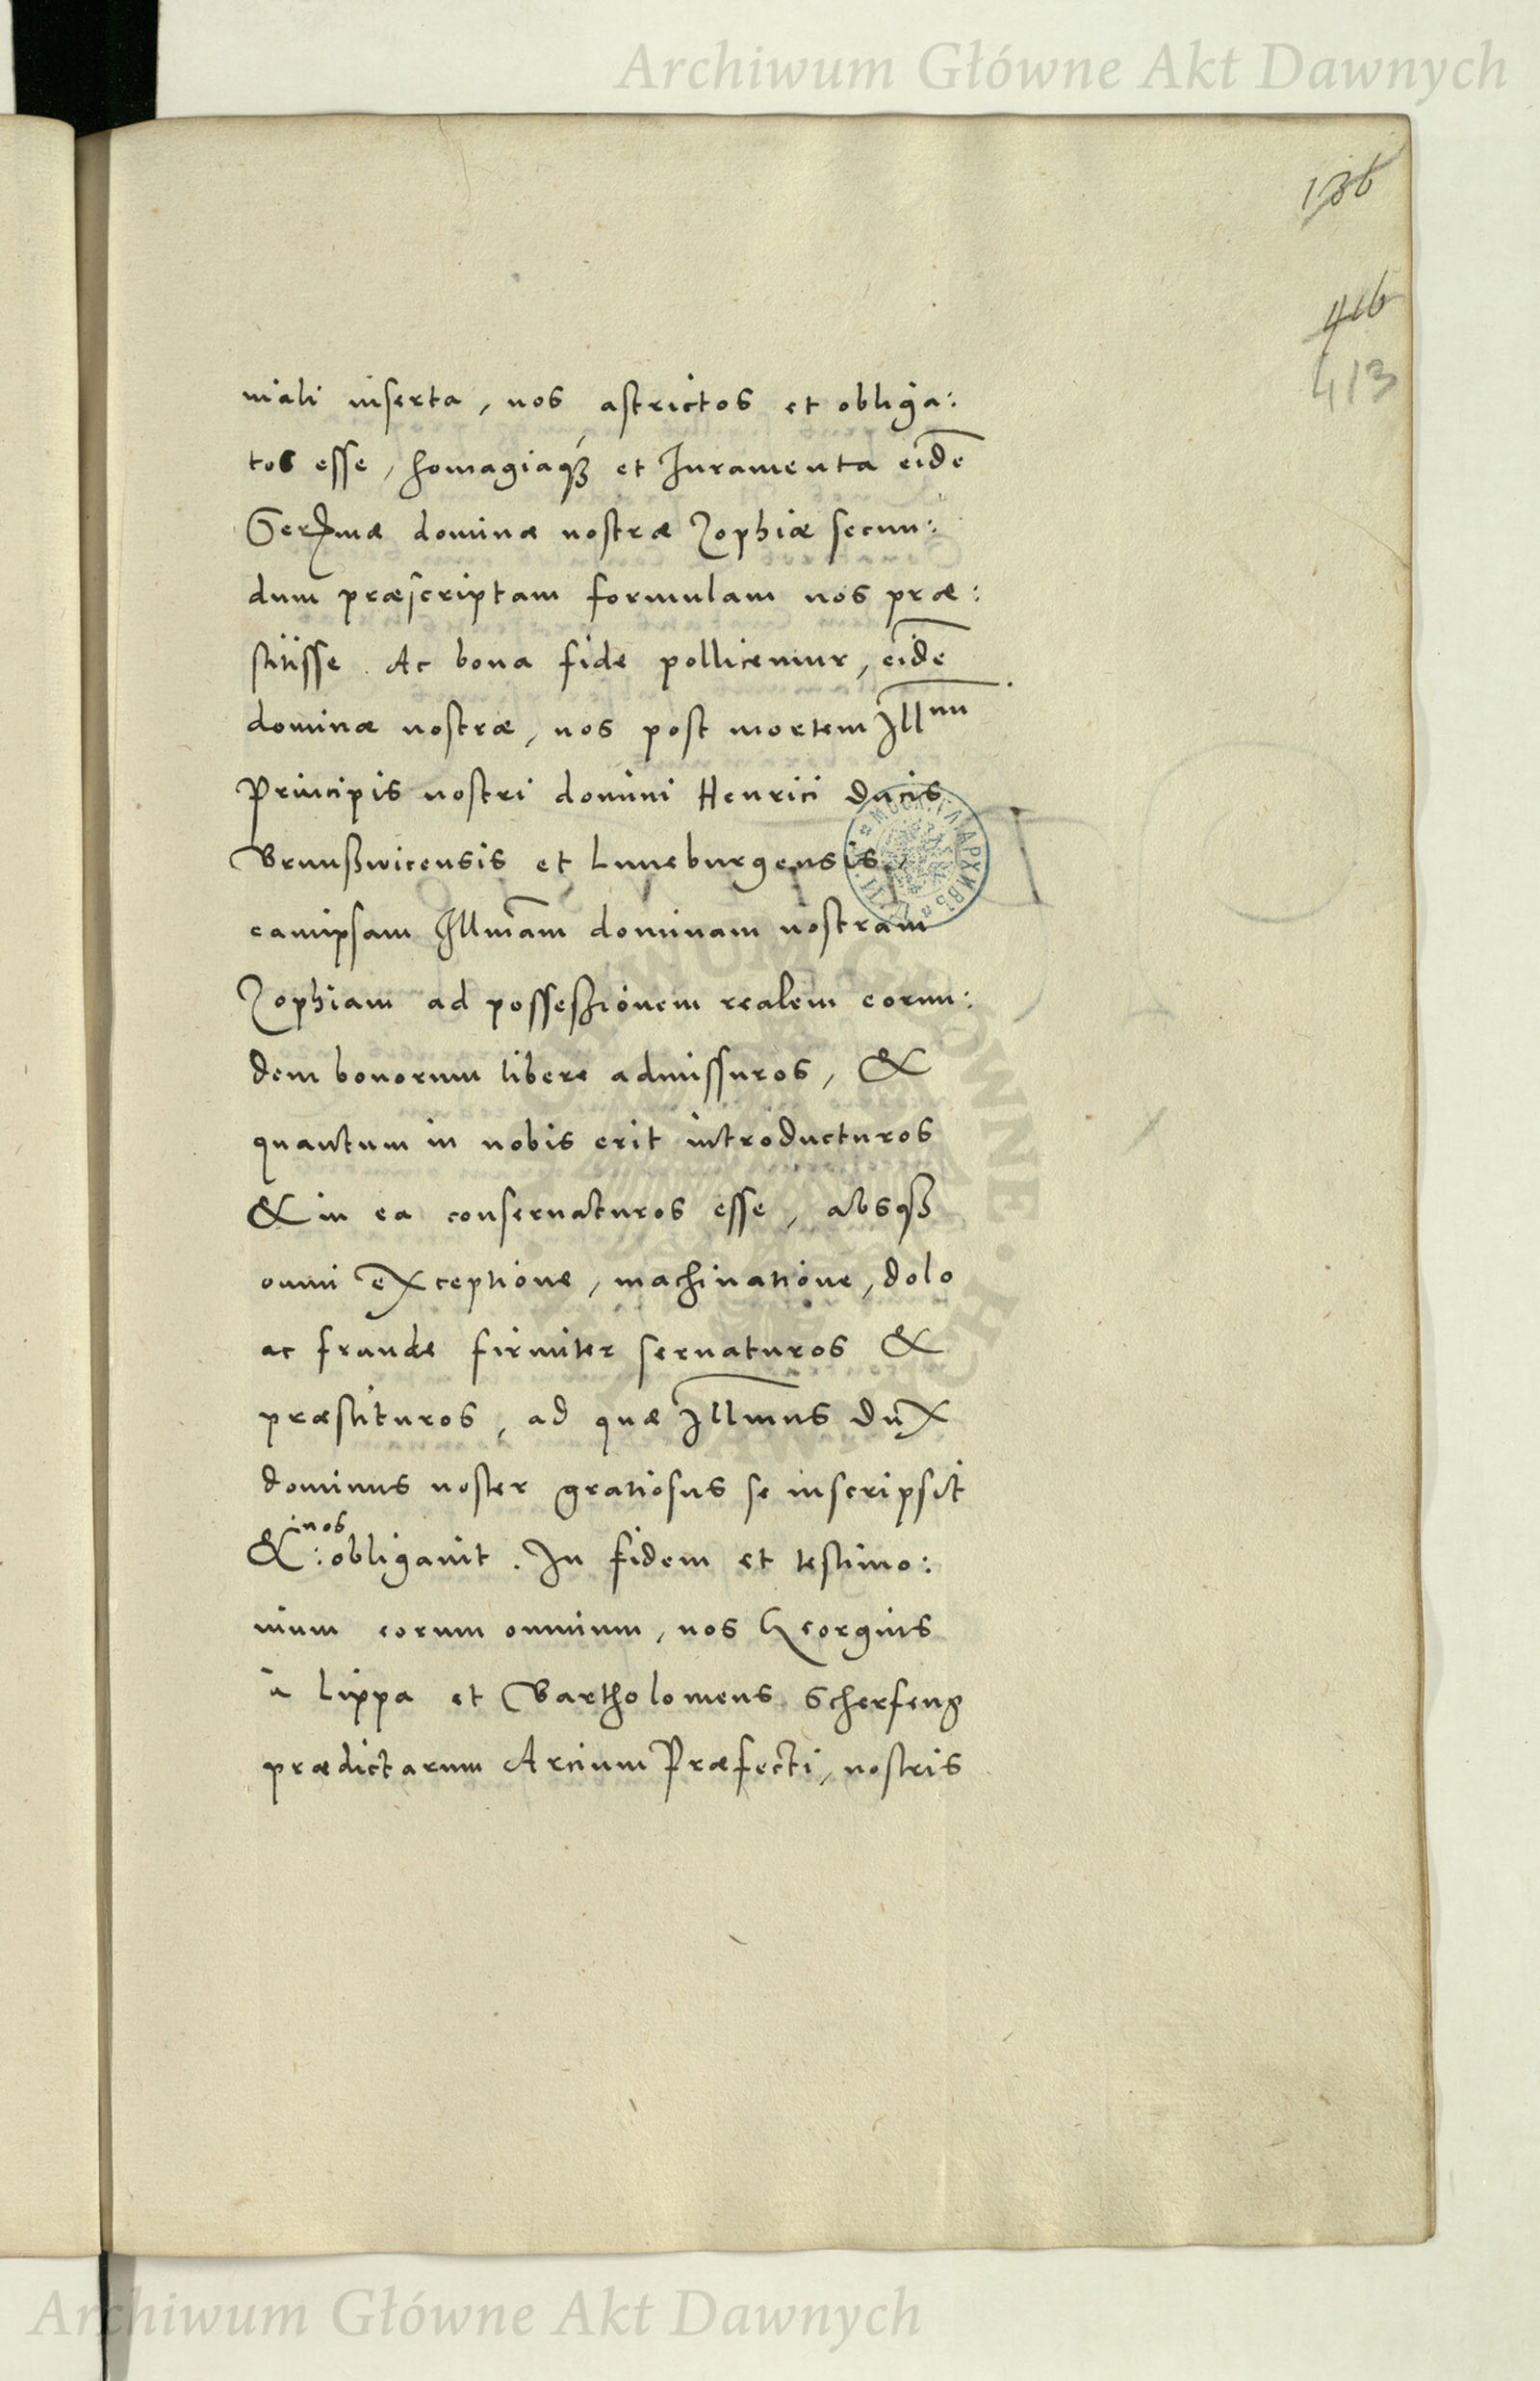 Archiwum Główne Akt Dawnych
136
416
413
niali inserta, nos astrictos et obliga:
tos esse, homagiaqȝ et Juramenta eidē
Serx̄mæ dominæ nostræ Zophiæ secun:
dum præscriptam formulam nos præ:
stitisse. Ac bona fide pollicemur, eidē
dominæ nostræ, nos post mortem Illmi
Principis nostri domini Henrici Ducis
Brunßwicensis et Luneburgensis,
eamipsam Illmam dominam nostram
Zophiam ad posseßionem realem eorun:
dem bonorum libere admissuros, &
quantum in nobis erit introducturos
& in ea conseruaturos esse, absqȝ
omni exceptione, machinatione, dolo
ac fraude firmiter seruaturos &
præstituros, ad quæ Illmus Dux
dominus noster gratiosus se inscripsit
& :nos: obligauit. In fidem et testimo:
nium eorum omnium, nos Georgius
à Lippa et Bartholomeus Scherfeng
prædictarum Arcium Præfecti, nostris
Archiwum Główne Akt Dawnych